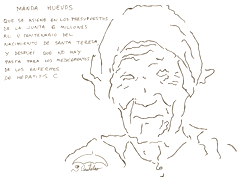 MANDA HUEVOS
QUE SE ASIGNE EN LOS PRESUPUESTOS
DE LA JUNTA 6 MILLONES
AL V CENTENARIO DEL
NACIMIENTO DE SANTA TERESA
Y DESPUÉS QUE NO HAY
PASTA PARA LOS MEDICAMENTOS
DE LOS ENFERMOS
DE HEPATITIS C